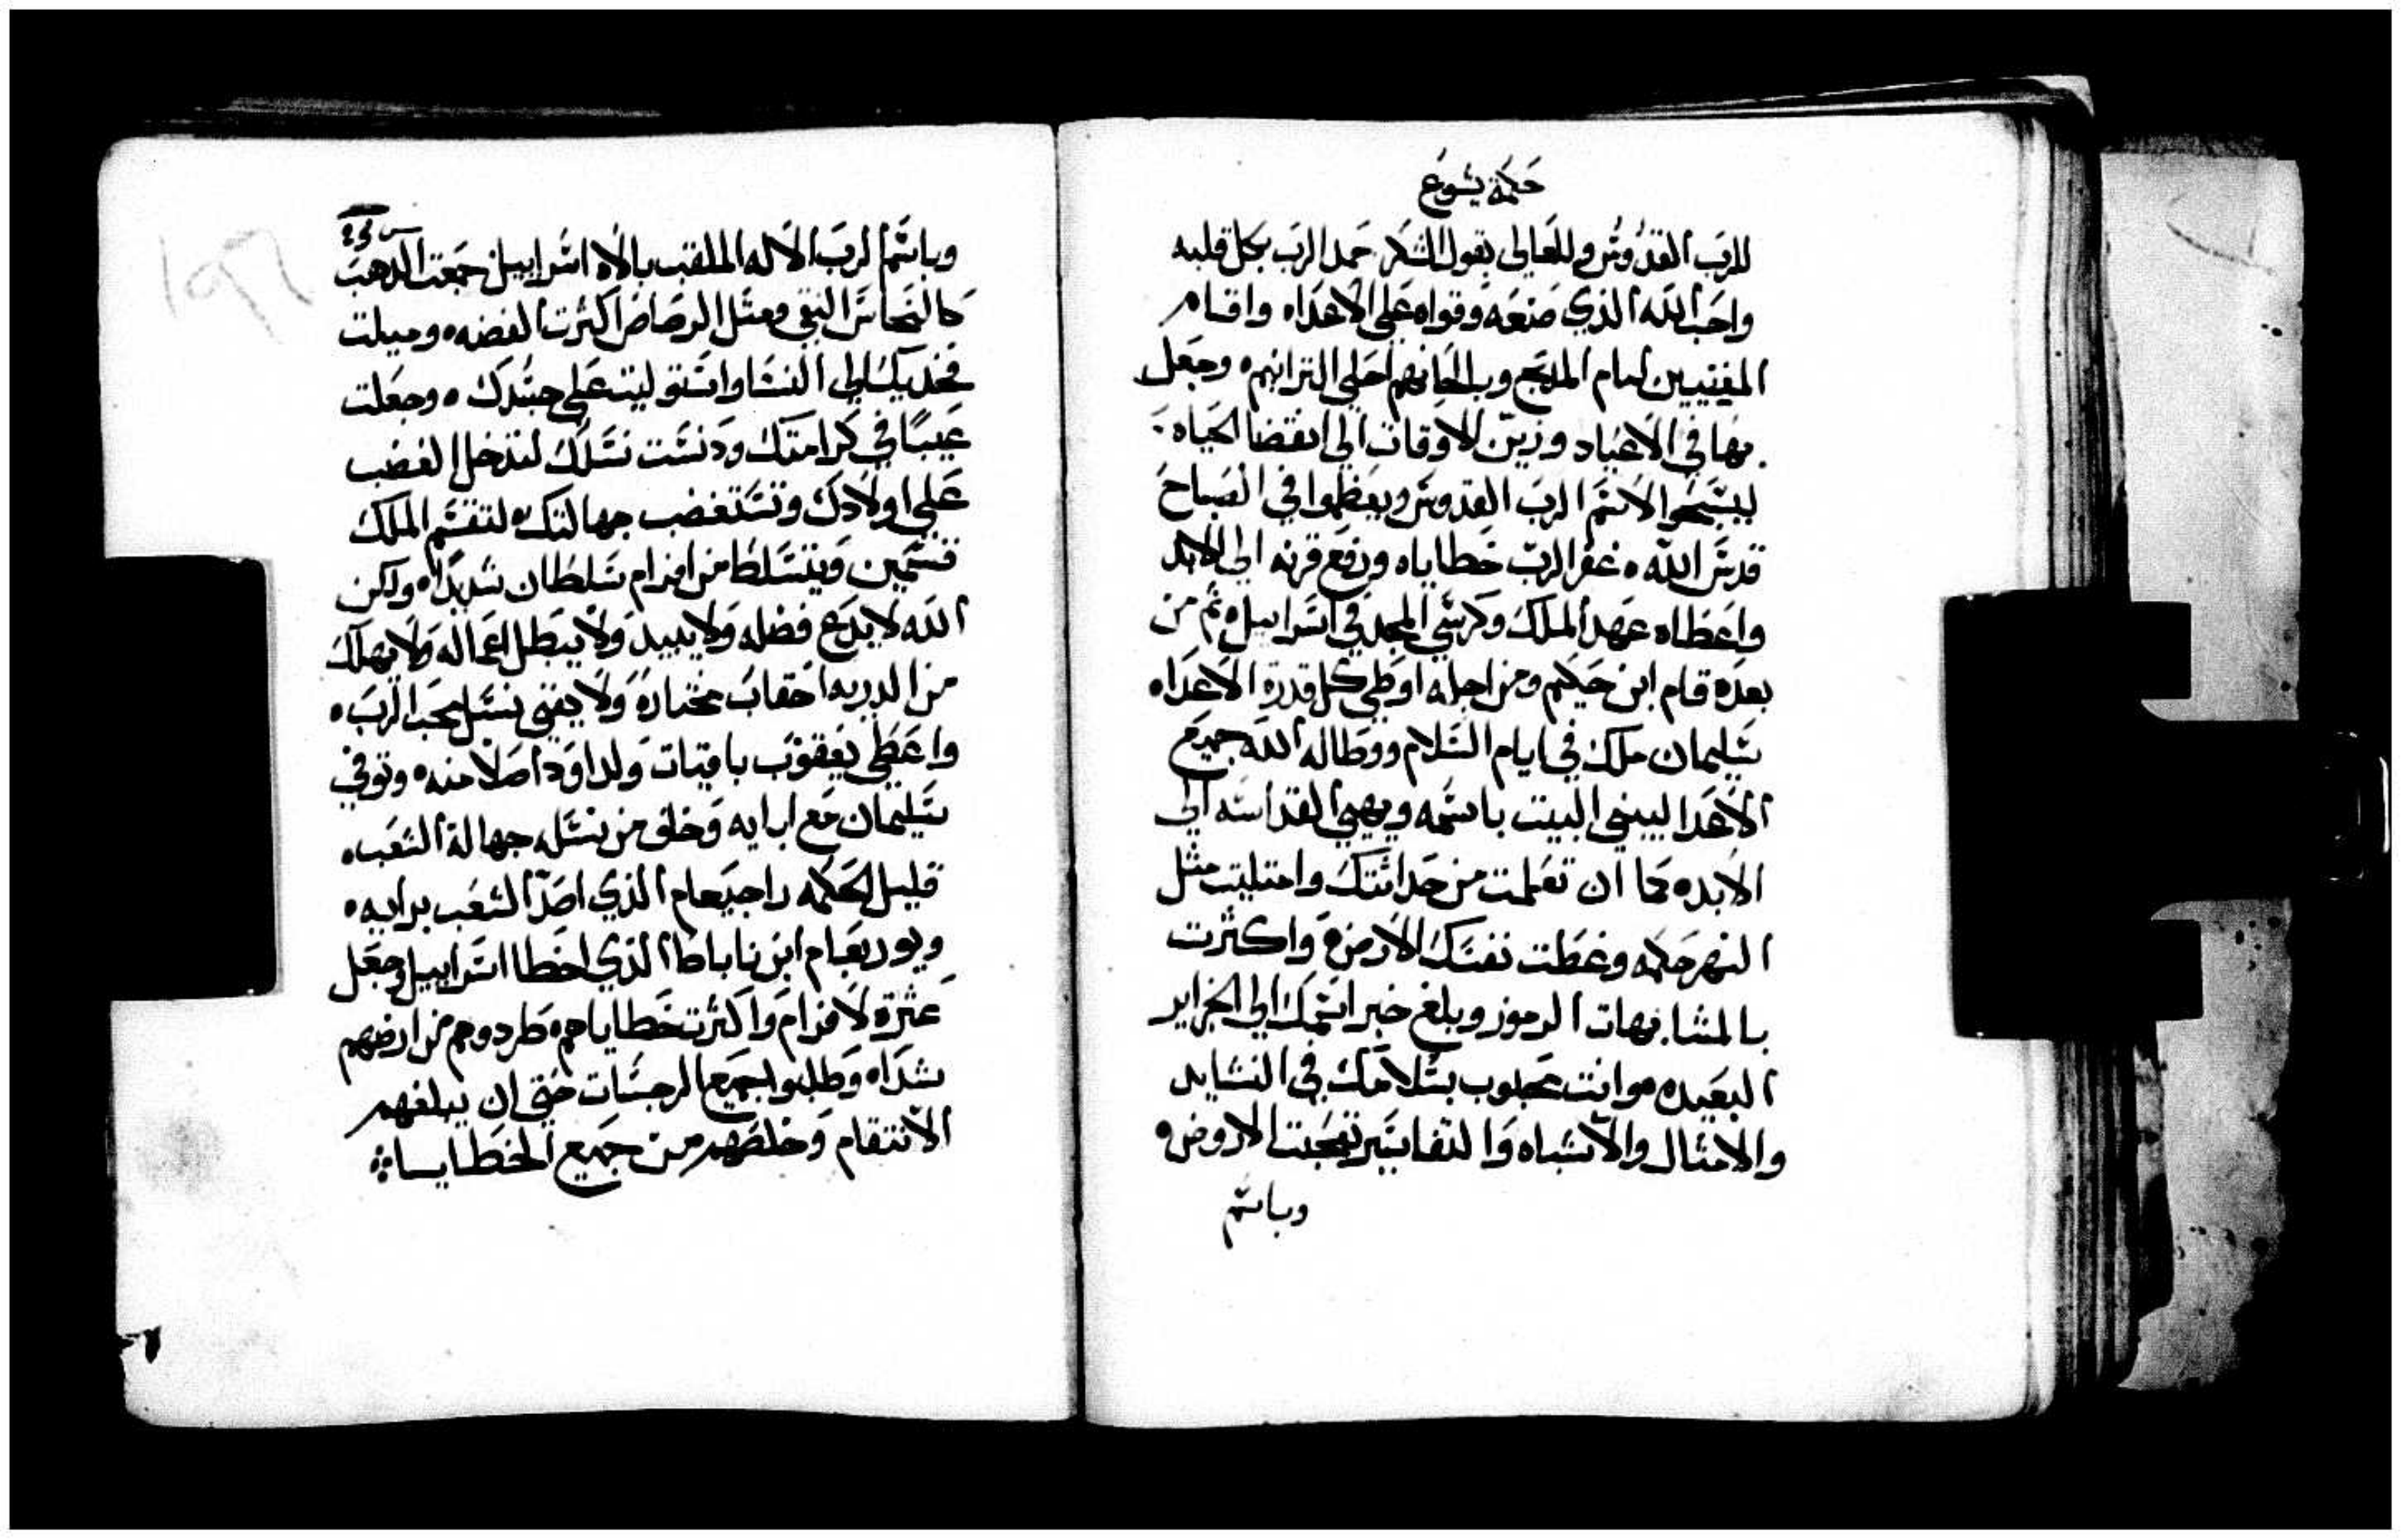 حكمة يشوع
للرب القدوس وللعالى بقول الشكر حمد الرب بكل قلبه
واحب الله الذي صنعه وقواه على الاعداه واقام
المغنيين امام المدبح وبالحانهم احلي الترانيم وجعل
بها في الاعياد وزين الاوقات الي انقضا الحياه
ليسبحوا لاسم الرب القدوس ويعظموا في الصباح
قدس الله غفر الرب خطاياه ورفع قرنه الي الابد
واعطاه عهد الملك وكرسي المجد في اسراييل ثم من
بعده قام ابن حكيم ومن اجله اوطي كل قدرة الاعداه
سليمان ملك في ايام السلام ووطا له الله جميع
الاعدا ليبني البيت باسمه ويهيي القداسه الي
الابد كما ان تعلمت من حداثتك وامتليت مثل
النهر حكمه وغطت نفسك الارض واكثرت
بالمشابهات الرموز وبلغ خبر اسمك الي الجزاير
البعيده وانت محبوب بسلامك في النشايد
والامثال والاشباه والتفاسير تعجبت الاروض
وباسم
وباسم الرب الاله الملقب بالاه اسراييل جمعت الدهب
كالنحاس النقي ومثل الرصاص اكثرت الفضه وميلت
فخديك الي النسا واستوليت على جسدك وجعلت
عيبا في كرامتك ودنست نسلك لتدخل الغضب
علي اولادك وتستغضب جهالتك لتقسم الملك
قسمين ويتسلط من افرام سلطان شديد ولكن
الله لا يدع فضله ولا يبيد ولا يبطل اعماله ولا يهلك
من الدريه احقاب مختاره ولا يفني نسل محب الرب
واعطي يعقوب باقيات ولداود اصلا منه وتوفي
سليمان مع ابايه وخلف من نسله جهالة الشعب
قليل الحكمه راجبعام الذي اصد الشعب برايه
ويوربعام ابن ناباط الذي اخطا اسراييل وجعل
عثرة لافرام واكثرت خطاياهم طردوهم من ارضهم
شداه وطلبوا جميع الرجسات حتي ان يبلغهم
الانتقام وخلصهم من جميع الخطايا